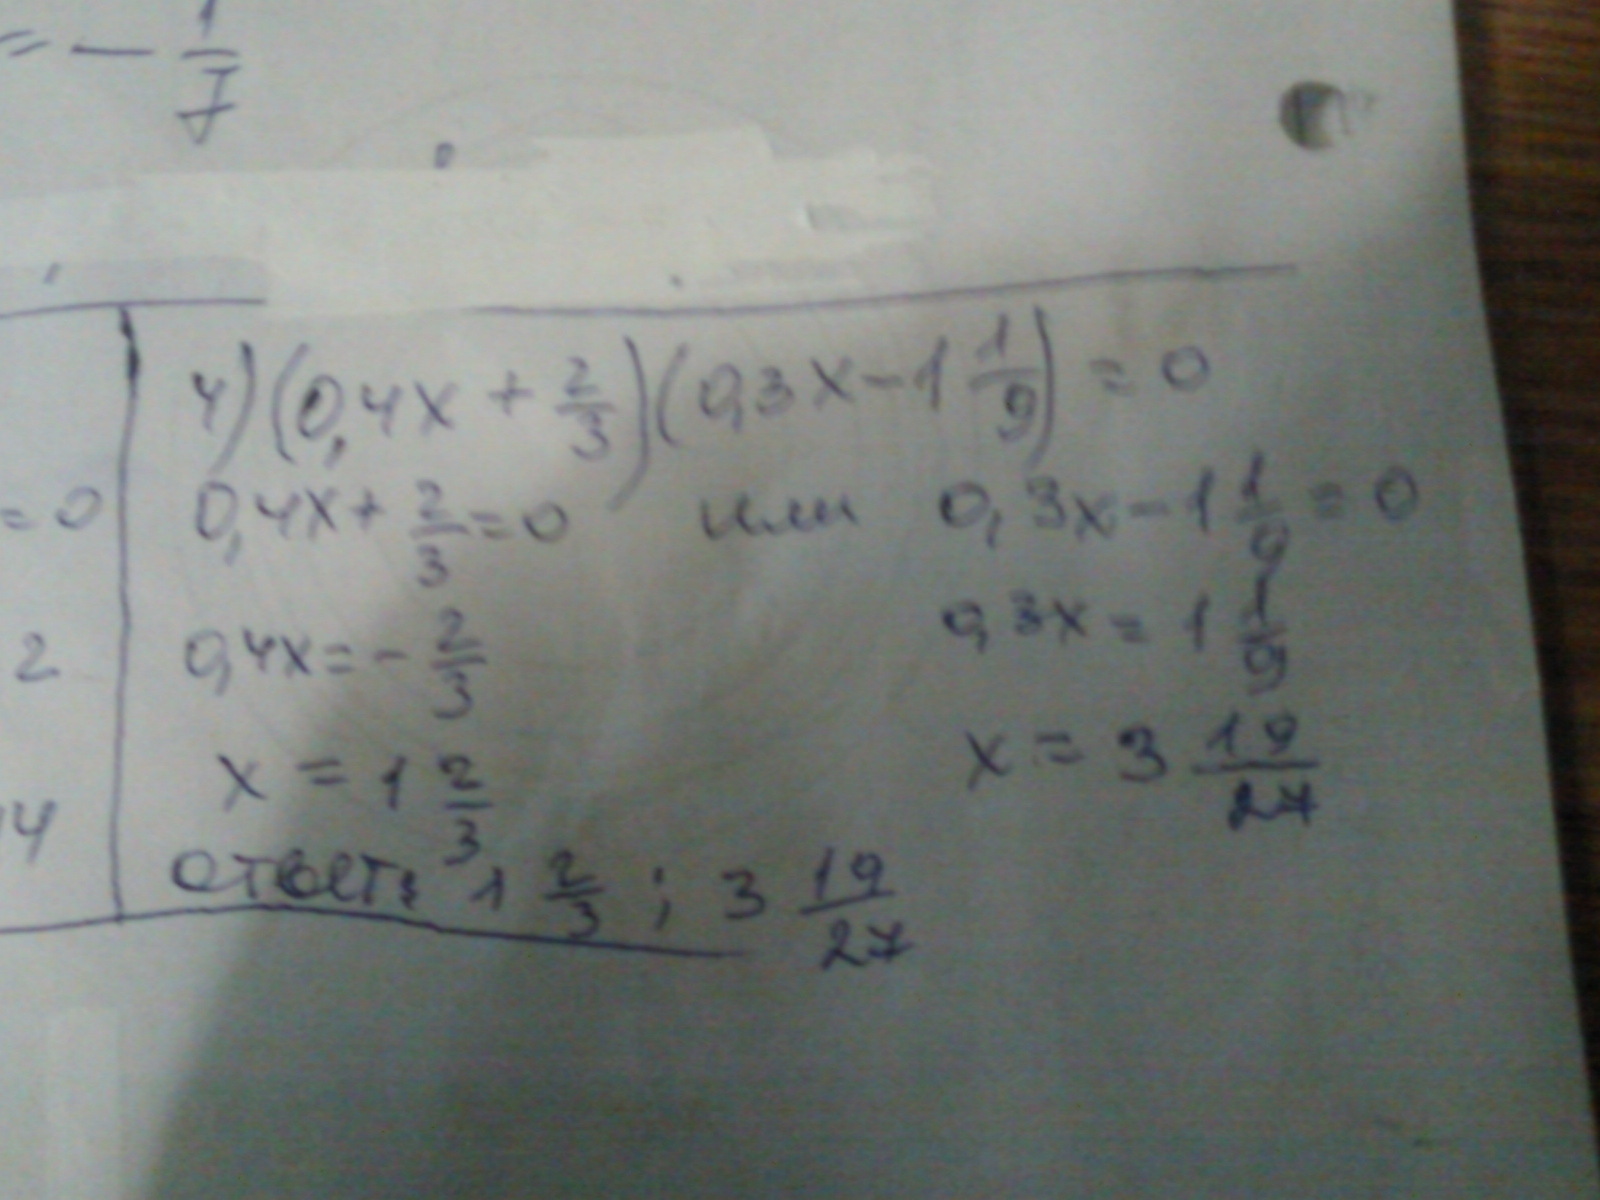 = - 1/7
4) (0,4x + 2/3) (0,3x - 1 1/9) = 0
= 0
0,4x + 2/3 = 0 или 0,3x - 1 1/9 = 0
2
0,4x = - 2/3 0,3x = 1 1/9
x = 1 2/3 x = 3 19/27
14
ответ: 1 2/3 ; 3 19/27